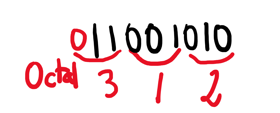 011001010
Octal 3 1 2